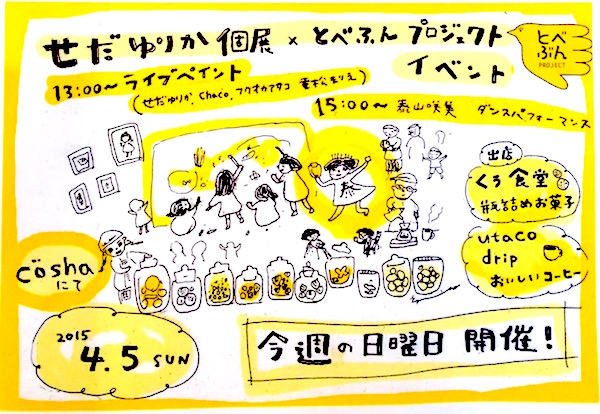 せだゆりか個展 × とべぶんプロジェクト
イベント
とべ
ぶん
PROJECT
13:00〜 ライブペイント
(せだゆりか, Chaco, フクオカアタコ 重松まりえ)
15:00〜 泰山咲美 ダンスパフォーマンス
出店
くぅ食堂
瓶詰めお菓子
utaco
drip
おいしいコーヒー
cösha
にて
2015
4.5 SUN
今週の日曜日 開催!